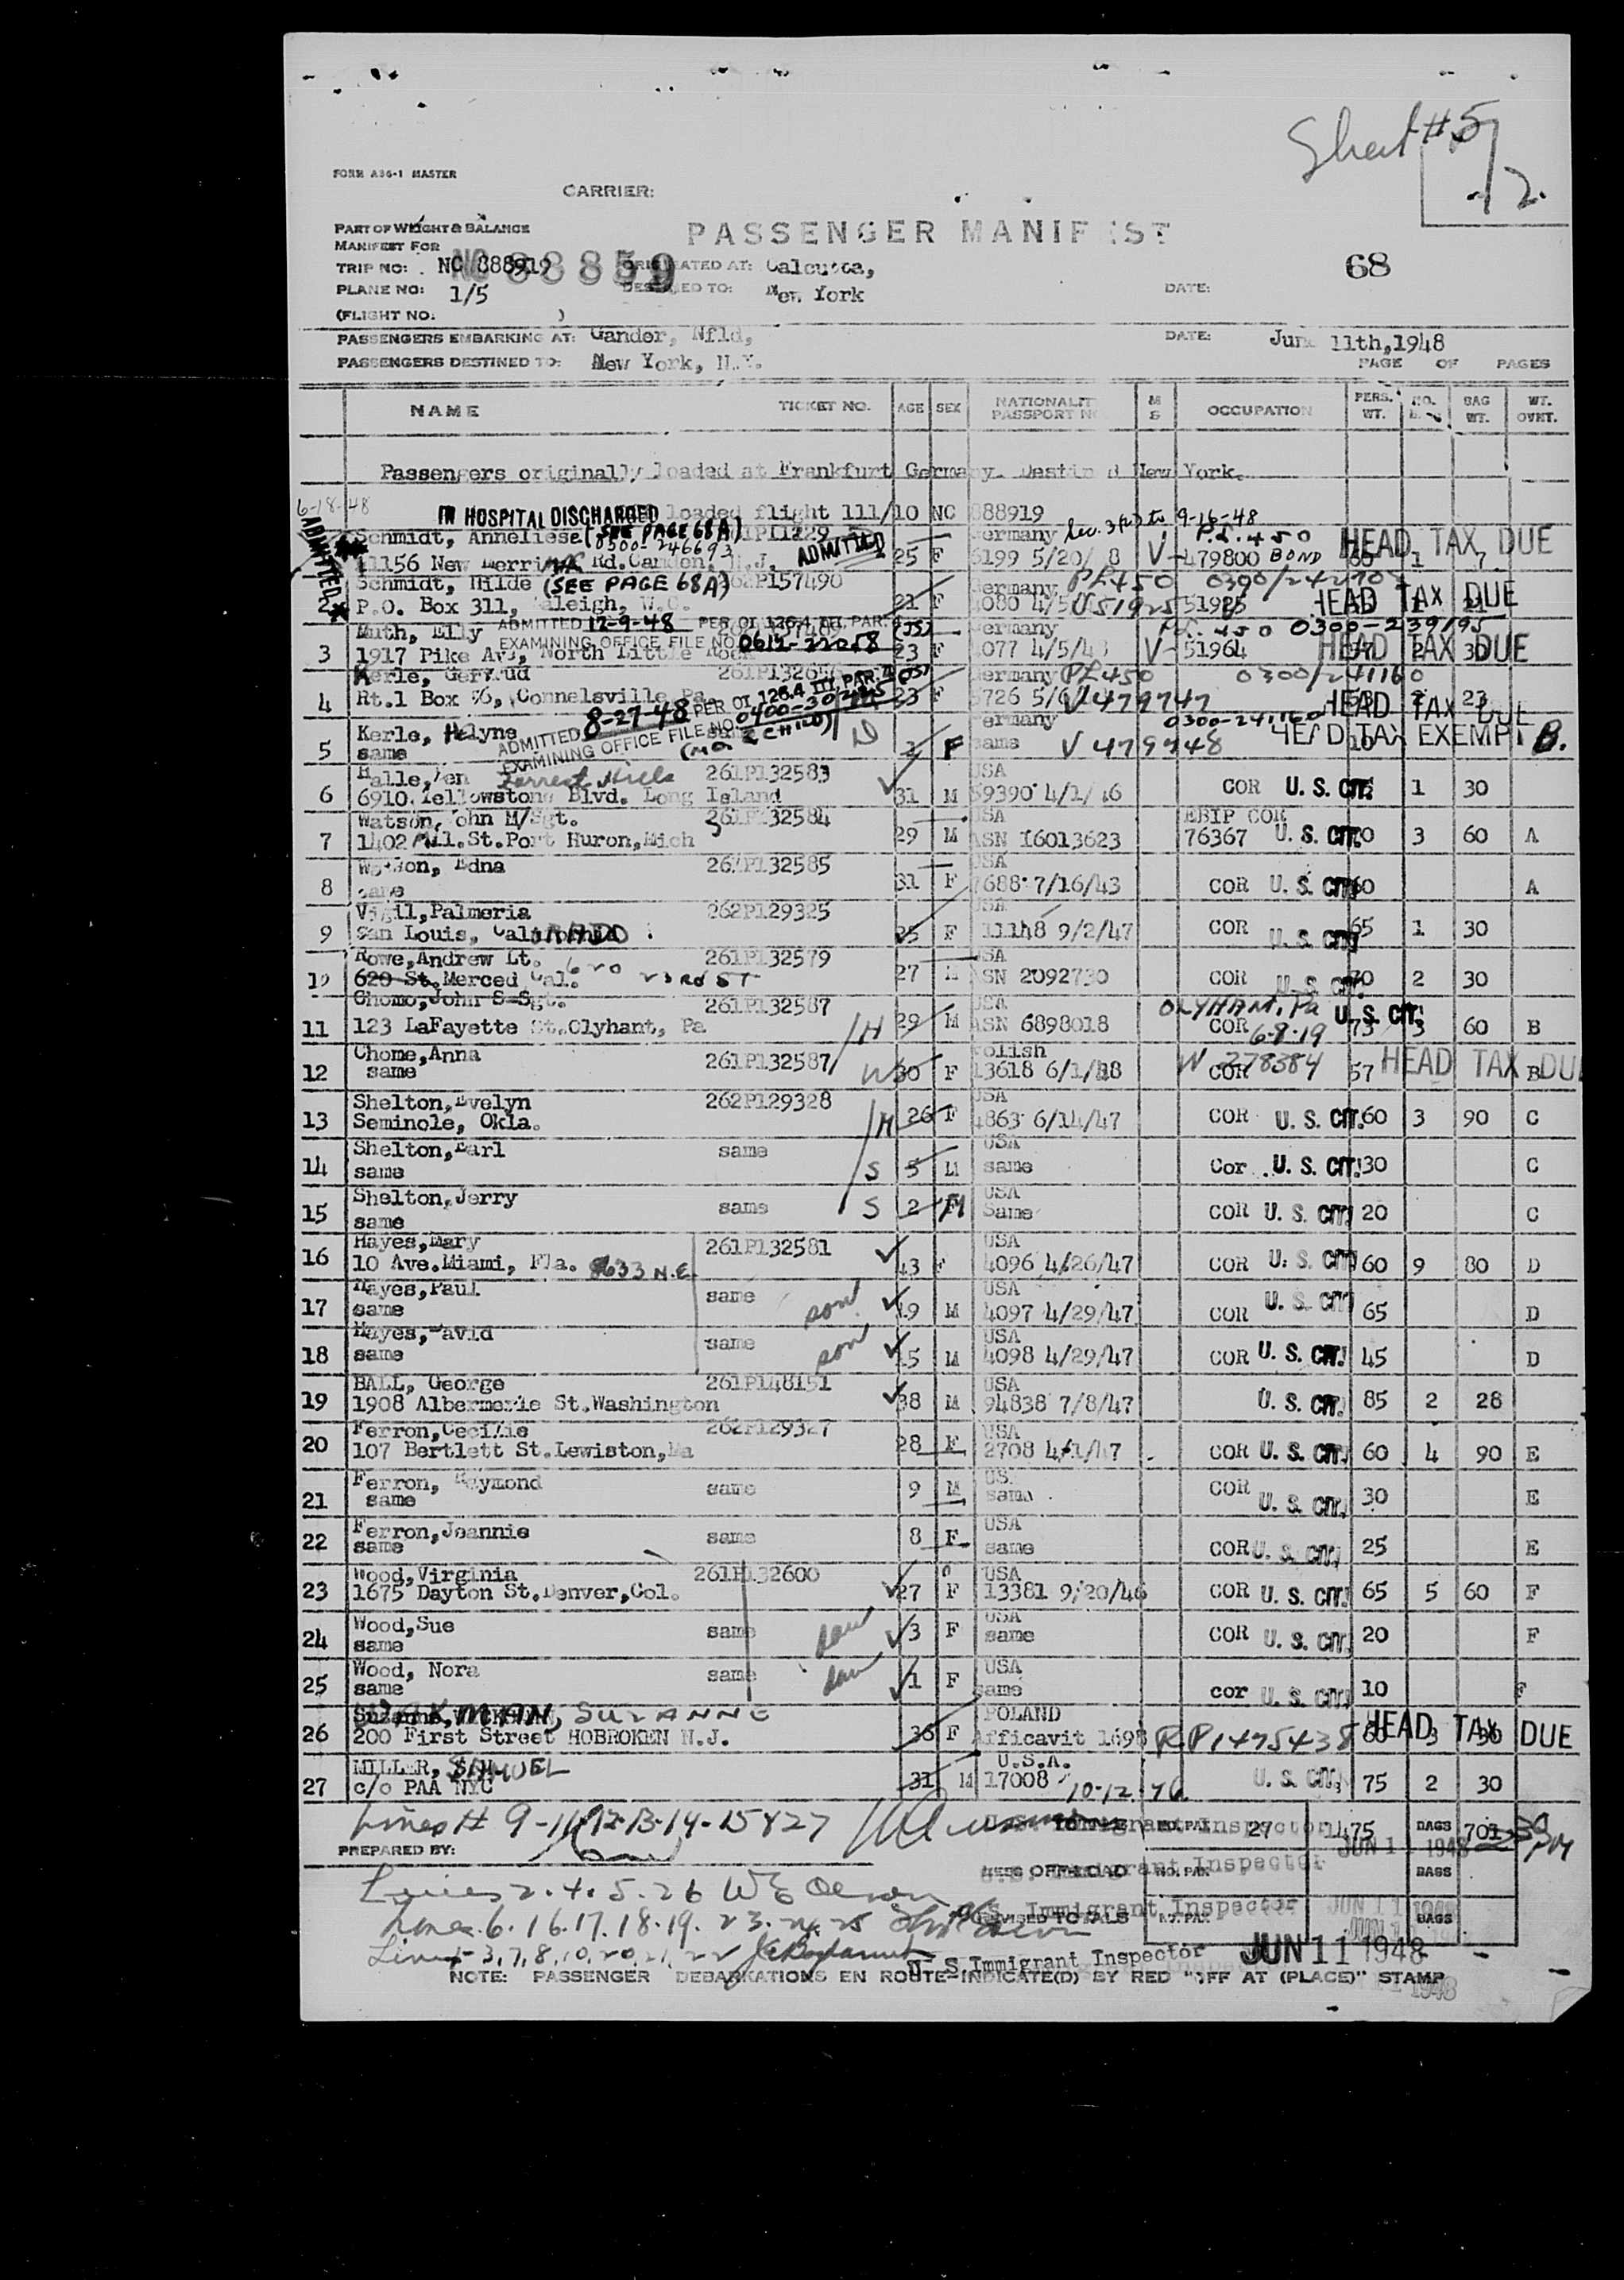 Sheet #5
12.
FORM A36-1 MASTER
CARRIER:
PART OF WEIGHT & BALANCE
MANIFEST FOR
PASSENGER MANIFEST
TRIP NO: NC 888919
NC 88859
ORIGINATED AT: Calcutta,
68
PLANE NO: 1/5
DESTINED TO: New York
DATE:
(FLIGHT NO: )
PASSENGERS EMBARKING AT: Gander, Nfld,
DATE: June 11th,1948
PASSENGERS DESTINED TO: New York, N.Y.
PAGE OF PAGES
NAME TICKET NO. AGE SEX NATIONALITY PASSPORT NO. M S OCCUPATION PERS. WT. NO. BAG WT. WT. OVHT.
Passengers originally loaded at Frankfurt Germany. Destined New York.
6-18-48
ADMITTED
IN HOSPITAL DISCHARGED loaded flight 111/10 NC 888919
Schmidt, Anneliese (SEE PAGE 68A) Germany Sec. 3(2) to 9-16-48 P.L. 450 HEAD TAX DUE
0300-246693
Rd. Camden, N.J. ADMITTED 25 F 6199 5/20/ 8 V-479800 BOND 1 7
Schmidt, Hilde (SEE PAGE 68A) 262P157490 Germany PL450
2 P.O. Box 311, Raleigh, 21 F 51925 HEAD TAX DUE
Muth, Elly ADMITTED 12-9-48 PER OI 126.4 III PAR. Germany 450 0300-239195
EXAMINING OFFICE FILE NO 0612-22058
3 1917 Pike Av, North Little Rock 23 F 4077 4/5/48 V-51964 HEAD TAX DUE
Kerle, Gertrud 261P132656 Germany PL450 0300/241160
4 Rt.1 Box 56, Connelsville Pa. 23 F V479747 HEAD TAX DUE
ADMITTED 8-27-48 PER OI 126.4 III PAR.
EXAMINING OFFICE FILE NO. 0400-
Kerle, Helyne Germany 0300-241160 HEAD TAX EXEMPT B.
5 same F same V 479748 10
Halle, Forrest Hills 261P132583 USA
6 6910 Yellowstone Blvd. Long Island 31 M 59390 4/1/46 COR U. S. CIT. 1 30
Watson, John M/Sgt. 261P132584 USA EBIP COR
7 1402 Mil.St.Port Huron,Mich 29 M ASN 16013623 76367 U. S. CIT. 3 60 A
Watson, Edna 261P132585 USA
8 same 31 F 7688 7/16/43 COR U. S. CIT 60 A
Vigil,Palmeria 262P129325 USA
9 San Louis, 25 F 11148 9/2/47 COR U. S. CIT 65 1 30
Rowe,Andrew Lt. 261P132579 USA
10 620 St.Merced Cal. 620 23RD ST 27 M ASN 2092730 COR U. S. CIT 70 2 30
Chomo,John S-Sgt. 261P132587 USA OLYHAM, Pa U. S. CIT.
11 123 LaFayette St.Olyhant, Pa H 29 M ASN 6898018 COR 6-8-19 73 3 60 B
Chome,Anna 261P132587 Polish
12 same W 30 F 13618 6/1/48 COR 278384 57 HEAD TAX DUE B
Shelton,Evelyn 262P129328 USA
13 Seminole, Okla. 26 F 4863 6/14/47 COR U. S. CIT. 60 3 90 C
Shelton,Earl same USA
14 same S 5 M same Cor U. S. CIT. 30 C
Shelton,Jerry same USA
15 same S 2 M Same COR U. S. CIT 20 C
Hayes,Mary 261P132581 USA
16 10 Ave.Miami, Fla. 9633 N.E. 43 F 4096 4/26/47 COR U. S. CIT 60 9 80 D
Hayes,Paul same USA
17 same son 19 M 4097 4/29/47 COR U. S. CIT 65 D
Hayes,David same USA
18 same son 15 M 4098 4/29/47 COR U. S. CIT. 45 D
BALL, George 261P148151 USA
19 1908 Albermerle St.Washington 38 M 94838 7/8/47 U. S. CIT. 85 2 28
Ferron,Cecilie 262P129327 USA
20 107 Bertlett St.Lewiston,Ma 28 F 2708 4/1/47 COR U. S. CIT. 60 4 90 E
Ferron, Raymond same US.
21 same 9 M same COR U. S. CIT. 30 E
Ferron,Jeannie same USA
22 same 8 F same COR U. S. CIT. 25 E
Wood,Virginia 261P132600 USA
23 1675 Dayton St.Denver,Col. 27 F 13381 9/20/46 COR U. S. CIT. 65 5 60 F
Wood,Sue same USA
24 same dau 3 F same COR U. S. CIT. 20 F
Wood, Nora same USA
25 same dau 1 F same cor U. S. CIT 10 F
WAKMAN, SUZANNE POLAND
26 200 First Street HOBROKEN N.J. 36 F Afficavit 1698 RP1475438 60 HEAD TAX DUE 3 30
MILLER, SAMUEL U.S.A.
27 c/o PAA NYC 31 M 17008 10-12-46 U. S. CIT. 75 2 30
Lines # 9-11-12-13-14-15 & 27 Immigrant Inspector NO. PAX 27 1475 BAGS 701
JUN 11 1948
PREPARED BY:
LESS OFFLOAD NO. PAX BAGS
Lines 2.4.5.26 W E Olson
Lines 6.16.17.18.19.23.24.25 Immigrant Inspector JUN 11 1948
REVISED TOTALS NO. PAX BAGS
Lines 1-3,7,8,10,20,21,22 U S Immigrant Inspector JUN 11 1948
NOTE: PASSENGER DEBARKATIONS EN ROUTE INDICATE(D) BY RED "OFF AT (PLACE)" STAMP